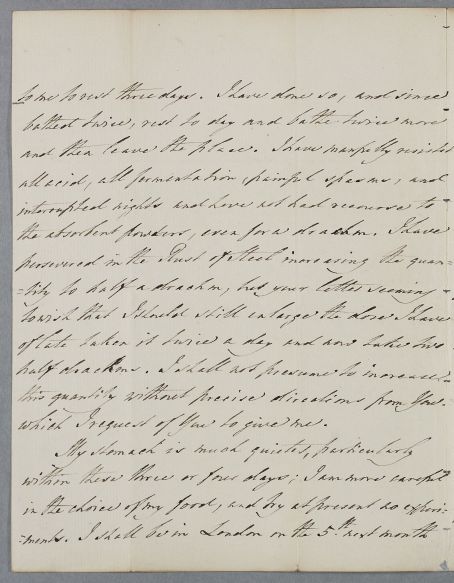 to me to rest three days. I have done so, and since
bathed twice, rest to day and bathe twice more
and then leave the place. I have manfully resisted
all acid, all fermentation, painful spasms, and
interrupted nights and have not had recourse to
the absorbent powders, even for a drachm. I have
persevered in the Rust of Steel increasing the quan-
-tity to half a drachm, but your letter seeming
to wish that I should still enlarge the dose I have
of late taken it twice a day and now take two
half drachms. I shall not presume to increase
this quantity without precise directions from You.
which I request of You to give me.
My stomach is much quieter, particularly
within these three or four days; I am more careful
in the choice of my food, and try at present no experi-
-ments. I shall be in London on the 5th next month